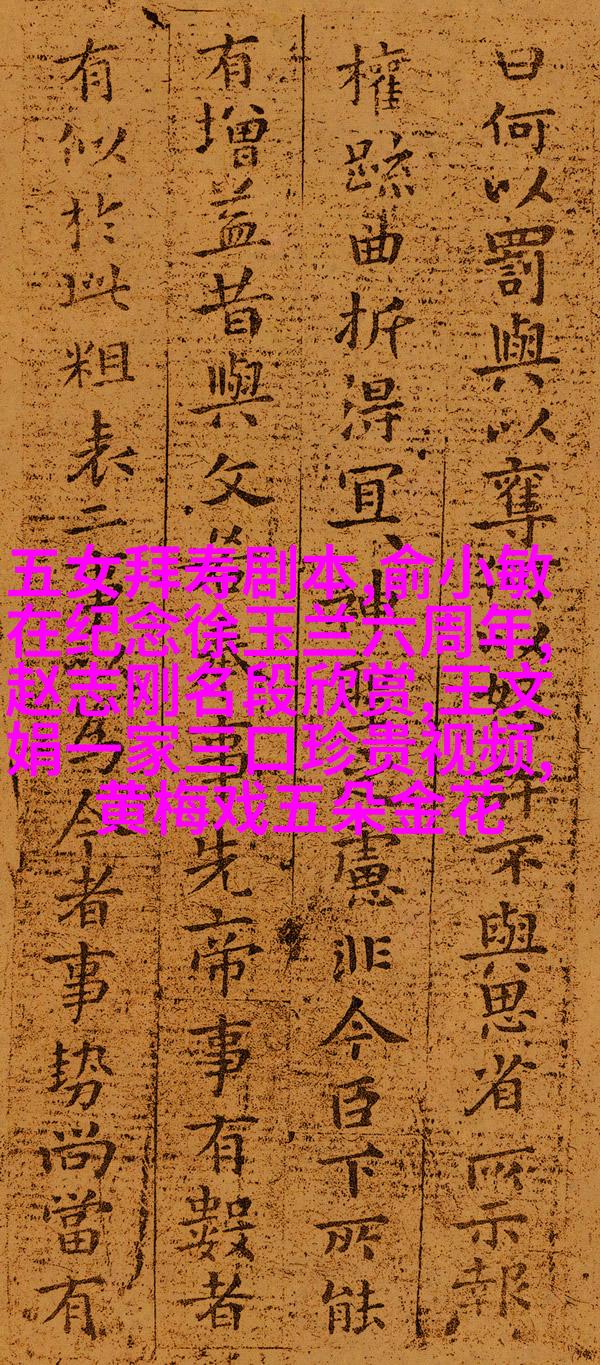 五女拜寿剧本,俞小敏
在纪念徐玉兰六周年,
赵志刚名段欣赏,王文
娟一家三口珍贵视频,
黄梅戏五朵金花
曰何以罰與以奪以許不與思省所示報
權踈曲折得冝神慮非今臣下所能
有增益昔與文若奉事先帝事有數者
有似於此粗表二為今者事勢尚當有